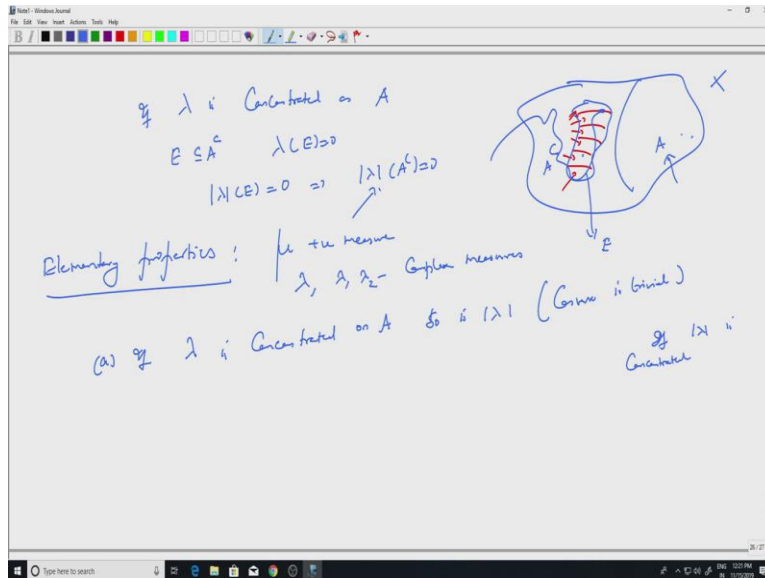 Note1 - Windows Journal
File Edit View Insert Actions Tools Help
If λ is Concentrated on A
E ⊆ A^c λ(E)=0
|λ|(E) = 0 => |λ|(A^c)=0
X
A^c
A
E
Elementary properties : μ +ve measure
λ, λ_1, λ_2 - Complex measures
(a) If λ is Concentrated on A so is |λ| (Converse is trivial)
If |λ| is
Concentrated
26 / 27
Type here to search
ENG 12:21 PM
IN 11/15/2019